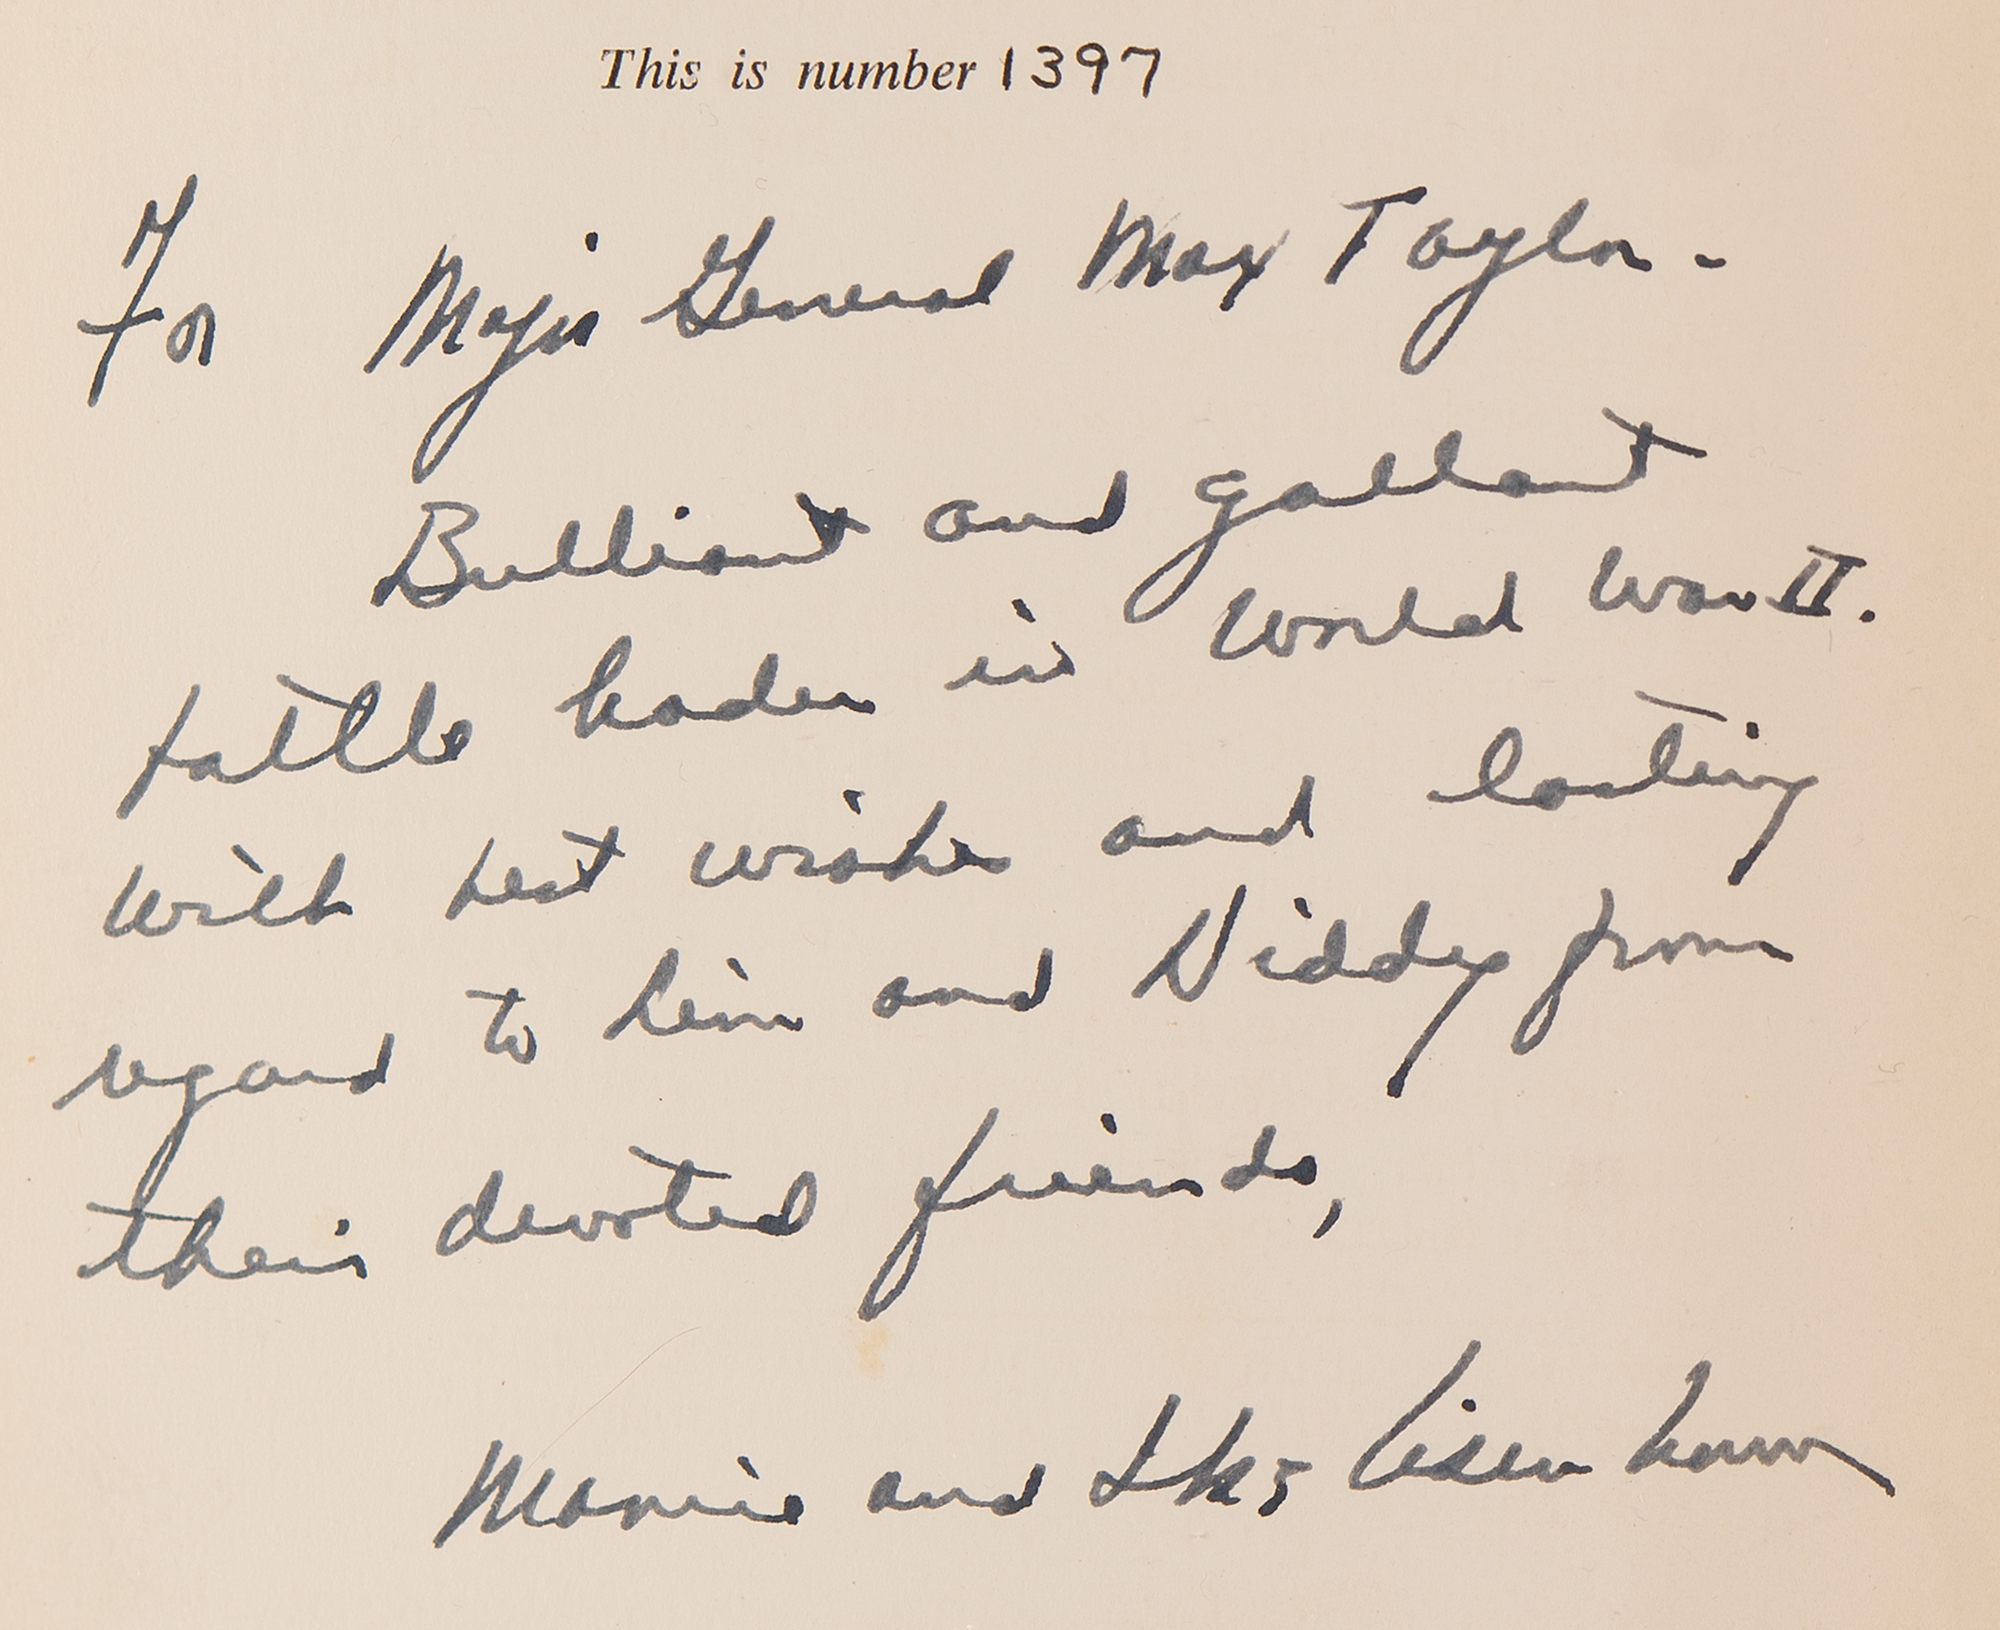 This is number 1397
For Major General Max Taylor -
Brilliant and gallant
battle leader in World War II.
With best wishes and lasting
regard to him and Diddy from
their devoted friends,
Mamie and Ike Eisenhower